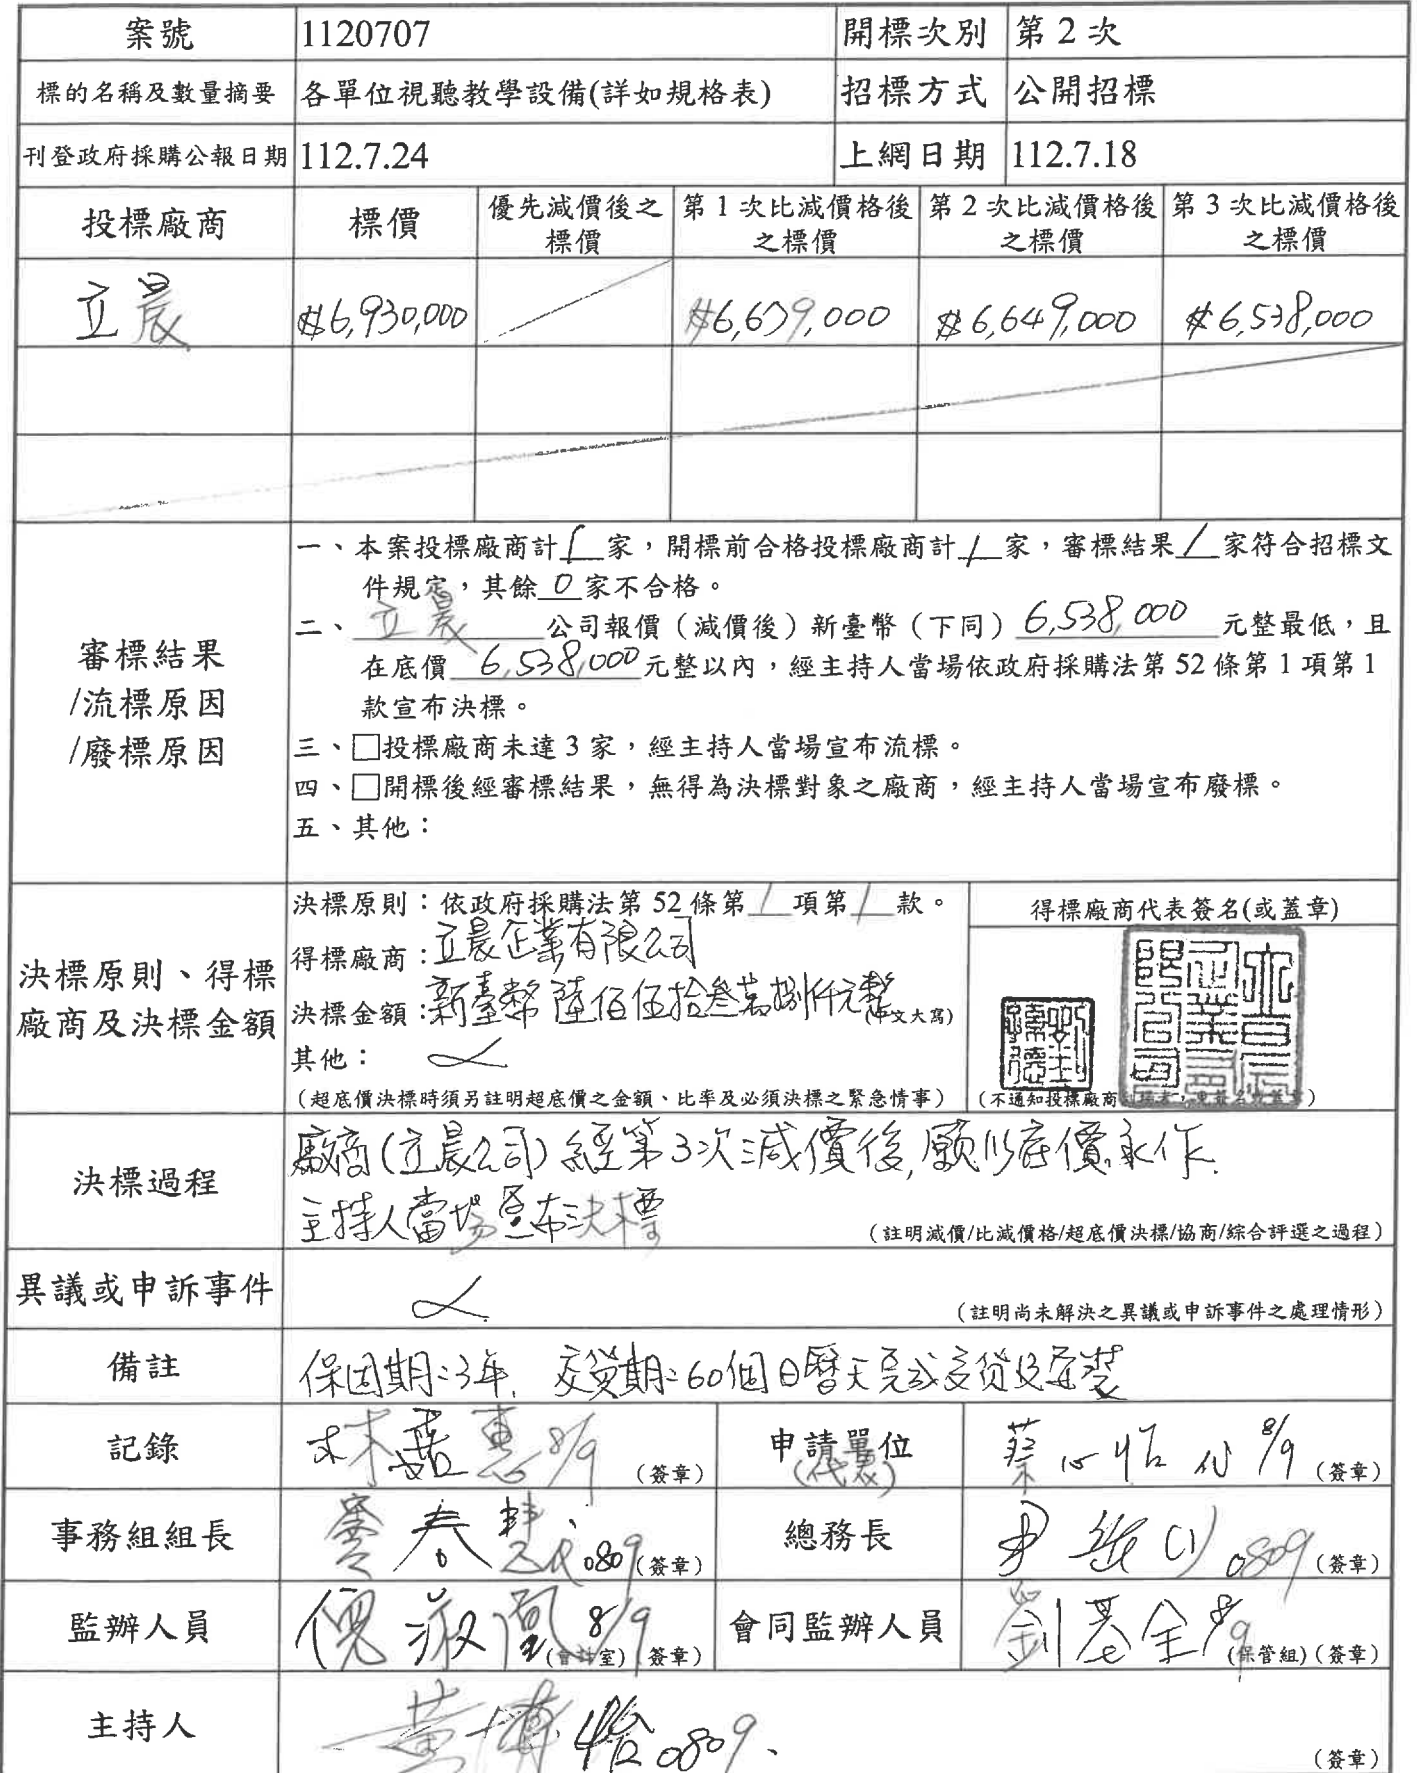 案號 1120707 開標次別 第 2 次
標的名稱及數量摘要 各單位視聽教學設備(詳如規格表) 招標方式 公開招標
刊登政府採購公報日期 112.7.24 上網日期 112.7.18
投標廠商 標價 優先減價後之標價 第 1 次比減價格後之標價 第 2 次比減價格後之標價 第 3 次比減價格後之標價
立晨 $6,930,000 $6,679,000 $6,649,000 $6,538,000
審標結果
/流標原因
/廢標原因
一、本案投標廠商計1家，開標前合格投標廠商計1家，審標結果1家符合招標文
件規定，其餘0家不合格。
二、立晨公司報價（減價後）新臺幣（下同）6,538,000元整最低，且
在底價6,538,000元整以內，經主持人當場依政府採購法第 52 條第 1 項第 1
款宣布決標。
三、□投標廠商未達 3 家，經主持人當場宣布流標。
四、□開標後經審標結果，無得為決標對象之廠商，經主持人當場宣布廢標。
五、其他：
決標原則、得標
廠商及決標金額
決標原則：依政府採購法第 52 條第1項第1款。
得標廠商：立晨企業有限公司
決標金額：新臺幣陸佰伍拾叁萬捌仟元整(中文大寫)
其他：
(超底價決標時須另註明超底價之金額、比率及必須決標之緊急情事)
得標廠商代表簽名(或蓋章)
立晨企業有限公司
(不通知投標廠商
決標過程
廠商(立晨公司)經第3次減價後,願以底價承作.
主持人當場宣布決標
(註明減價/比減價格/超底價決標/協商/綜合評選之過程)
異議或申訴事件
(註明尚未解決之異議或申訴事件之處理情形)
備註 保固期:3年. 交貨期:60個日曆天完成交貨及安裝
記錄 林 惠 8/9 (簽章) 申請單位 (代表) 蔡心怡 代 8/9 (簽章)
事務組組長 春 代 0809 (簽章) 總務長 尹 0809 (簽章)
監辦人員 倪淑凰 8/9 (會計室) (簽章) 會同監辦人員 劉基全 8/9 (保管組) (簽章)
主持人 黃博怡 0809 (簽章)